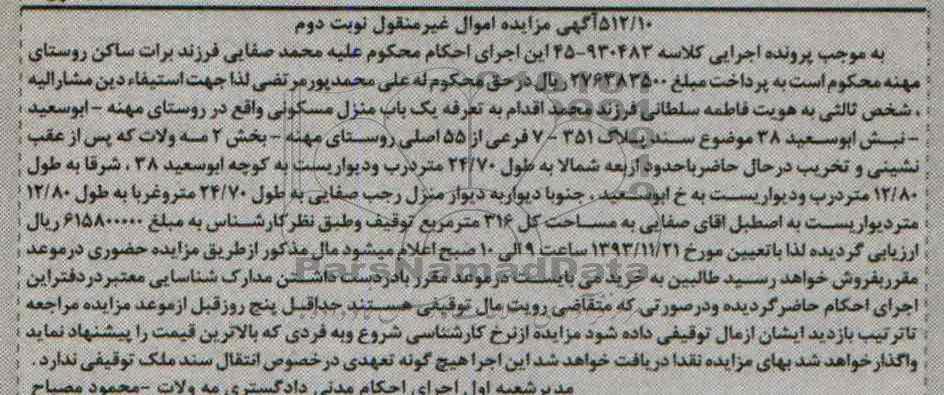 ۵۱۲/۱۰آگهی مزایده اموال غیرمنقول نوبت دوم
به موجب پرونده اجرایی کلاسه ۹۳۰۴۸۳-۴۵ این اجرای احکام محکوم علیه محمد صفایی فرزند برات ساکن روستای
مهنه محکوم است به پرداخت مبلغ ۲۷۶۴۸۳۵۰۰ ریال درحق محکوم له علی محمدپورمرتضی لذا جهت استیفاء دین مشارالیه
، شخص ثالثی به هویت فاطمه سلطانی فرزند محمد اقدام به تعرفه یک باب منزل مسکونی واقع در روستای مهنه - ابوسعید
- نبش ابوسعید ۳۸ موضوع سند پلاک ۳۵۱ - ۷ فرعی از ۵۵ اصلی روستای مهنه - بخش ۲ مه ولات که پس از عقب
نشینی و تخریب درحال حاضرباحدود اربعه شمالا به طول ۲۴/۷۰ متردرب ودیواریست به کوچه ابوسعید ۳۸ ، شرقا به طول
۱۲/۸۰ متردرب ودیواریست به خ ابوسعید ، جنوبا دیواربه دیوار منزل رجب صفایی به طول ۲۴/۷۰ متروغربا به طول ۱۲/۸۰
متردیواریست به اصطبل اقای صفایی به مساحت کل ۳۱۶ مترمربع توقیف وطبق نظر کارشناس به مبلغ ۶۱۵۸۰۰۰۰۰ ریال
ارزیابی گردیده لذا باتعیین مورخ ۱۳۹۳/۱۱/۲۱ ساعت ۹ الی ۱۰ صبح اعلام میشود مال مذکور ازطریق مزایده حضوری درموعد
مقرربفروش خواهد رسید طالبین به خرید می بایست درموعد مقرر بادردست داشتن مدارک شناسایی معتبردردفتراین
اجرای احکام حاضرگردیده ودرصورتی که متقاضی رویت مال توقیفی هستند حداقبل پنج روزقبل ازموعد مزایده مراجعه
تاترتیب بازدید ایشان ازمال توقیفی داده شود مزایده ازنرخ کارشناسی شروع وبه فردی که بالاترین قیمت را پیشنهاد نماید
واگذارخواهد شد بهای مزایده نقدا دریافت خواهد شد این اجرا هیچ گونه تعهدی درخصوص انتقال سند ملک توقیفی ندارد .
مدیرشعبه اول اجرای احکام مدنی دادگستری مه ولات -محمود مصباح
ParsNamadData